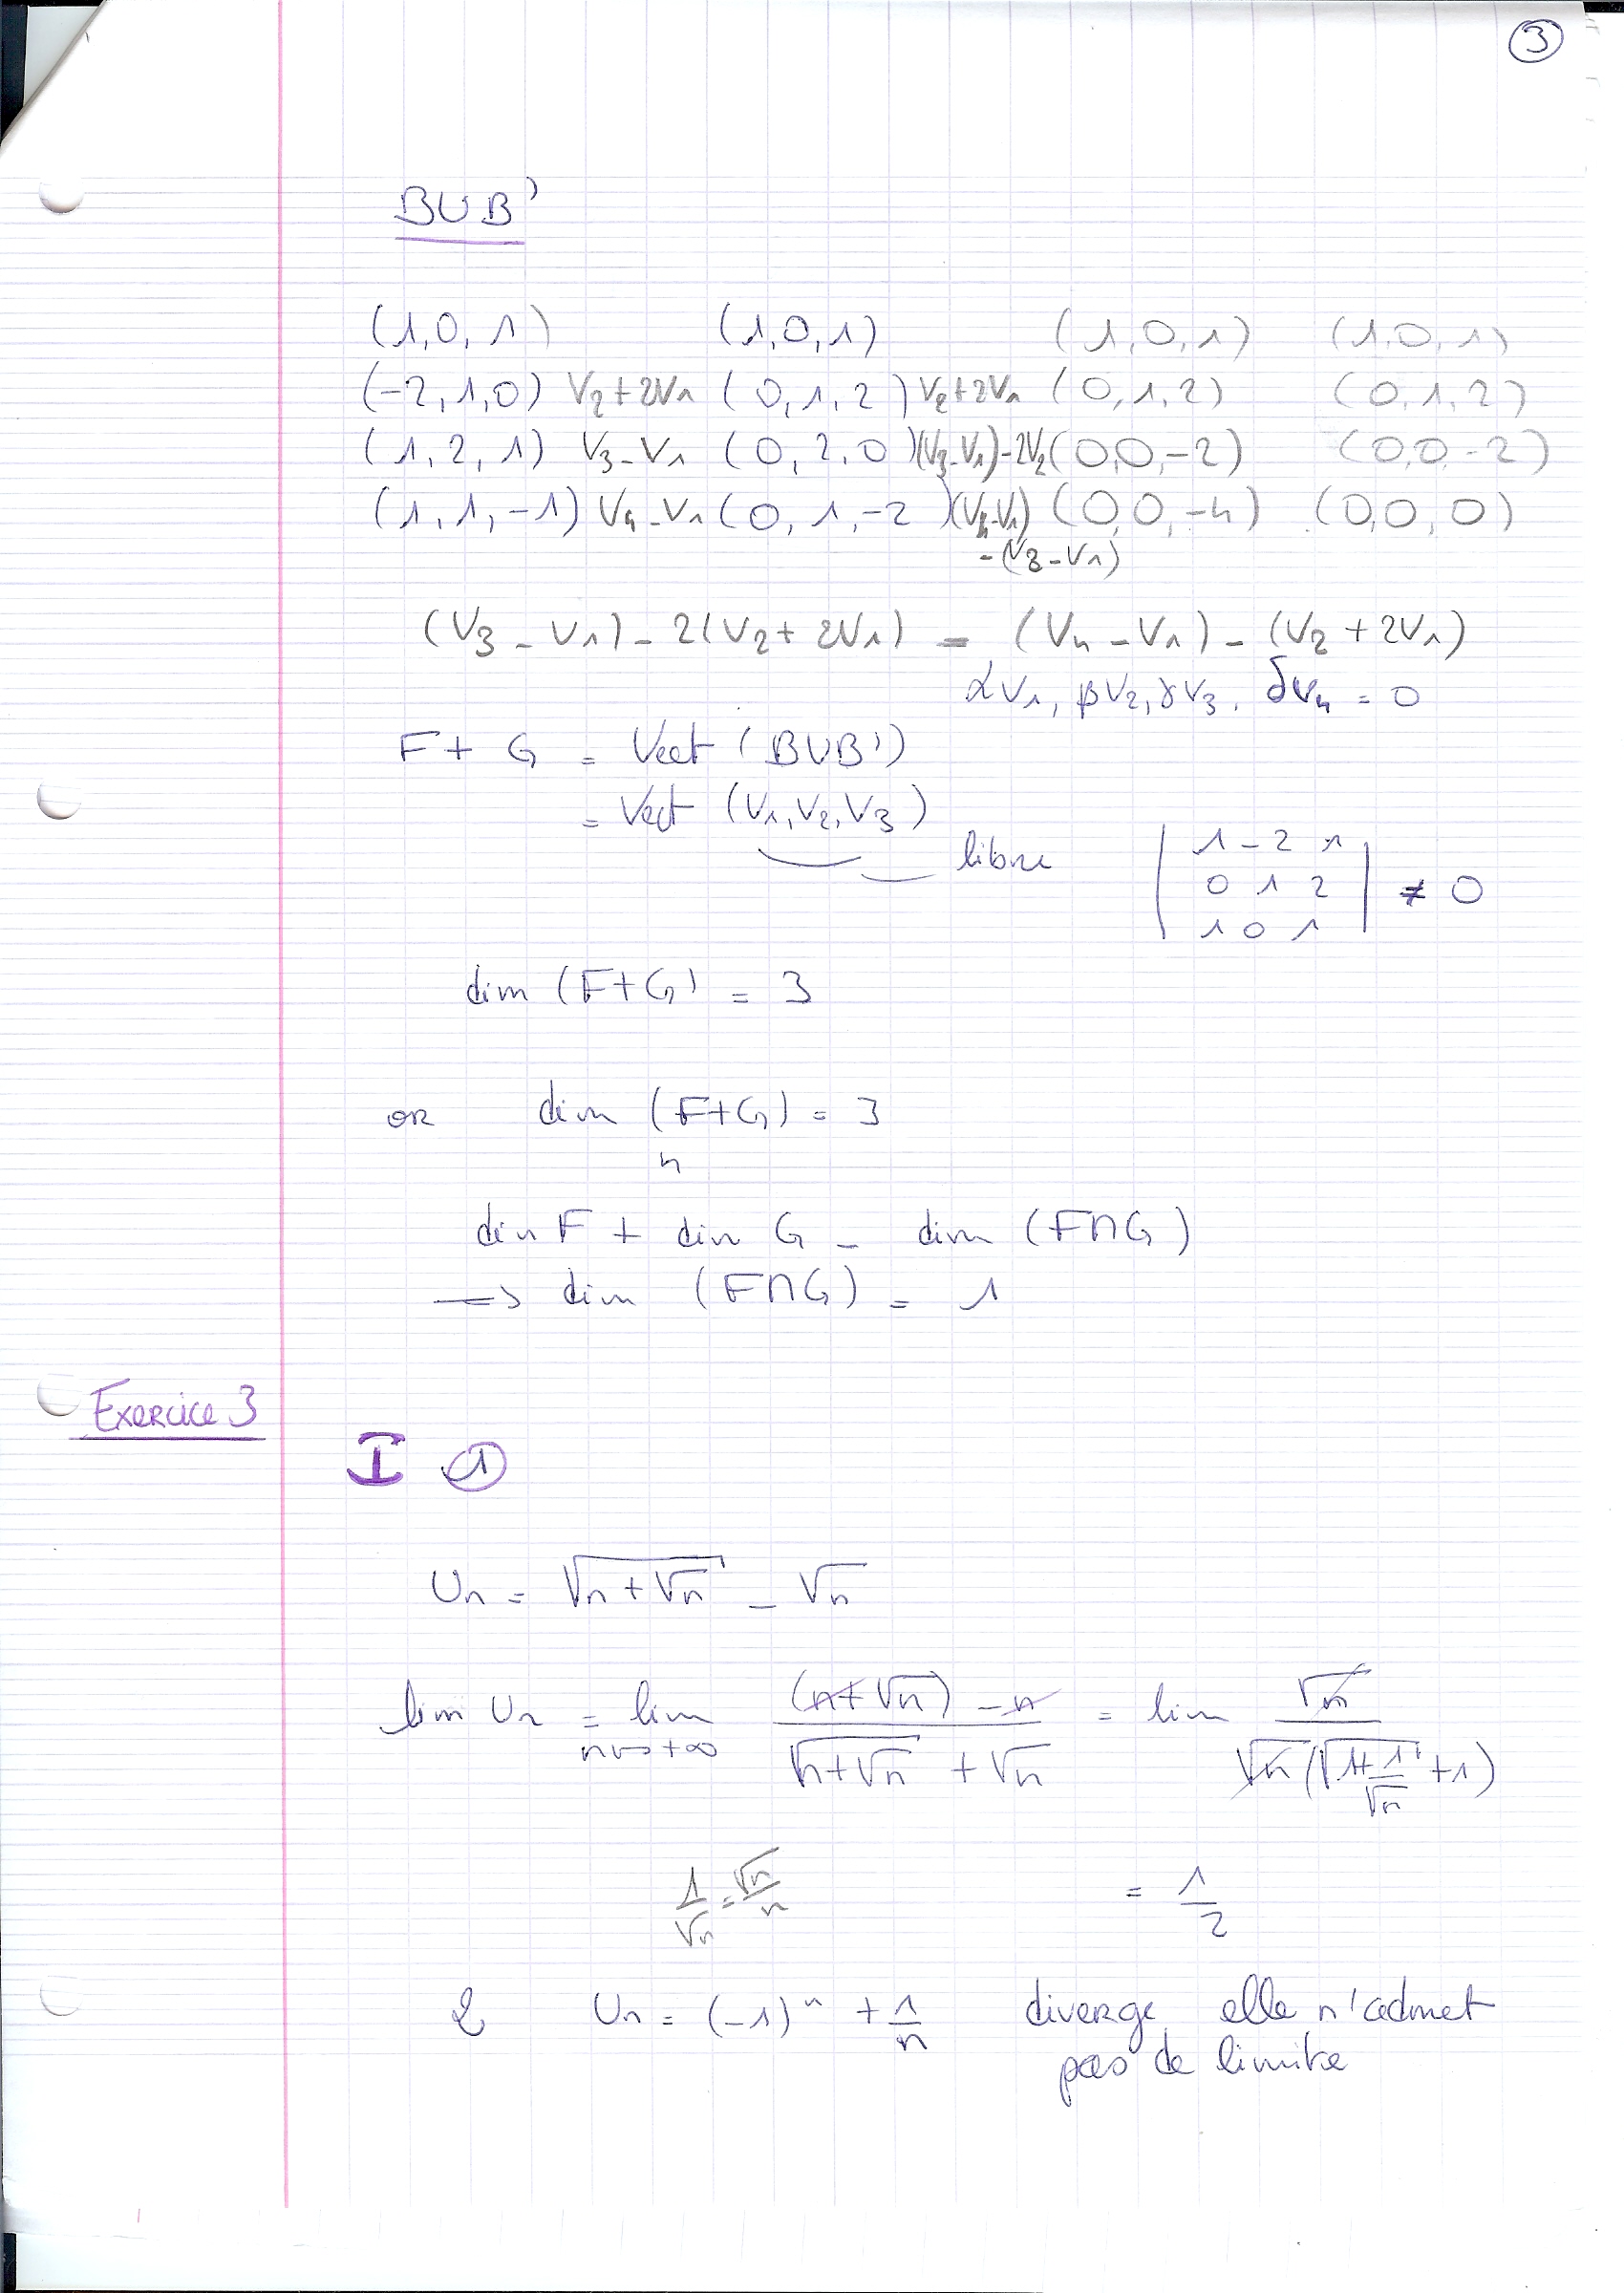 ③
B∪B'
(1,0,1) (1,0,1) (1,0,1) (1,0,1)
(-2,1,0) V₂+2V₁ (0,1,2) V₂+2V₁ (0,1,2) (0,1,2)
(1,2,1) V₃-V₁ (0,2,0) (V₃-V₁)-2V₂ (0,0,-2) (0,0,-2)
(1,1,-1) V₄-V₁ (0,1,-2) (V₄-V₁) (0,0,-4) (0,0,0)
-(V₃-V₁)
(V₃-V₁)-2(V₂+2V₁) = (V₄-V₁)-(V₂+2V₁)
αV₁, βV₂, γV₃, δV₄ = 0
F+G = Vect (B∪B')
= Vect (V₁,V₂,V₃)
libre
| 1 -2 1 |
| 0 1 2 | ≠ 0
| 1 0 1 |
dim (F+G) = 3
or dim (F+G) = 3
"
dim F + dim G - dim (F∩G)
⟹ dim (F∩G) = 1
Exercice 3
I ①
Un = √(n+√n) - √n
lim Un = lim n→+∞ ((n+√n) - n)/(√(n+√n) + √n) = lim √n/(√n(√(1+1/√n)+1))
1/√n = √n/n = 1/2
2 Un = (-1)ⁿ + 1/n diverge, elle n'admet
pas de limite